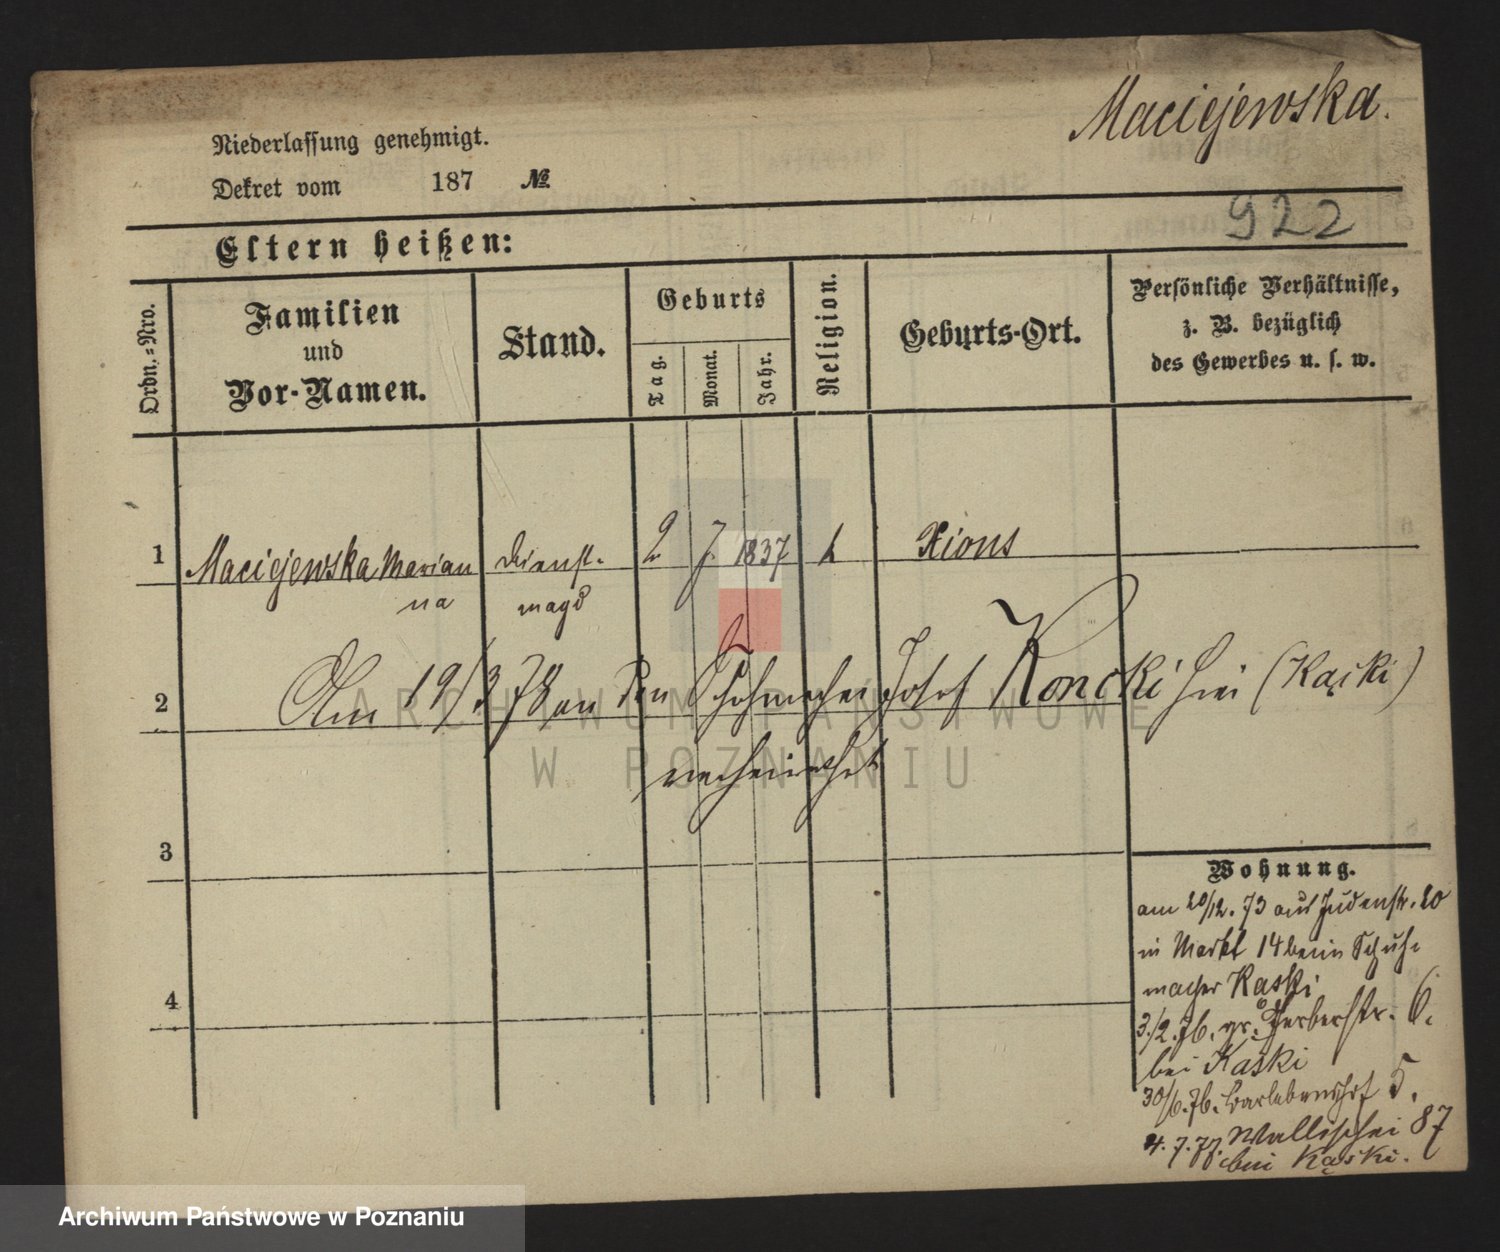 Maciejewska.
Niederlassung genehmigt.
Dekret vom 187 №
922
Eltern heißen:
Ordn.=Nro.
Familien
und
Vor-Namen.
Stand.
Geburts
Tag.
Monat.
Jahr.
Religion.
Geburts-Ort.
Persönliche Verhältnisse,
z. B. bezüglich
des Gewerbes u. s. w.
1 Maciejewska Marian
na
Dienst-
magd
2 7. 1837 k Xions
2 Am 19/3 78 an den Schuhmacher Josef Koncki hier (Kąski)
verheirathet
3
4
Wohnung.
am 20/12. 73 aus Judenstr. 20
in Markt 14 beim Schuh-
macher Kaski
3./2. 76. gr. Gerberstr. 6.
bei Kaski
30/6. 76. Barlebenshof 5.
4. 7. 77. Wallischei 87
bei Kąski.
ARCHIWUM PAŃSTWOWE
W POZNANIU
Archiwum Państwowe w Poznaniu